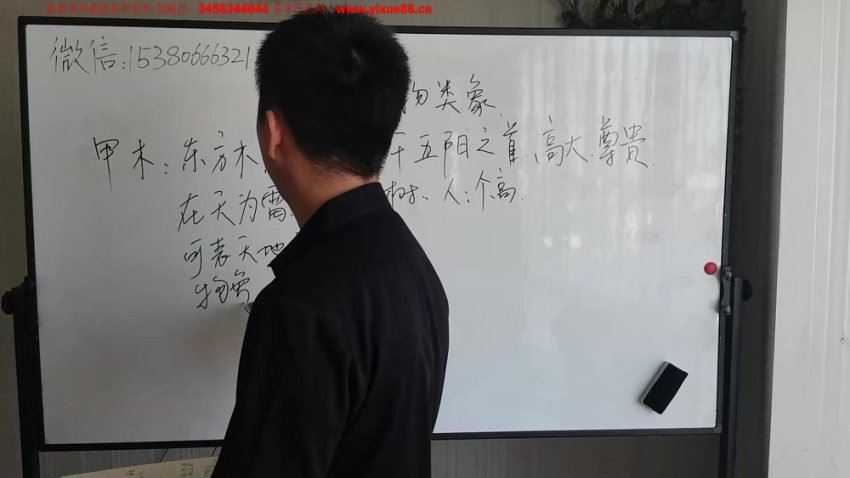 3458344044 www.yixue88.cn
微信:15380666321
物类象
甲木:东方木 干五阳之首、高大、尊贵.
在天为雷 树、人:个高.
可表天地
物象